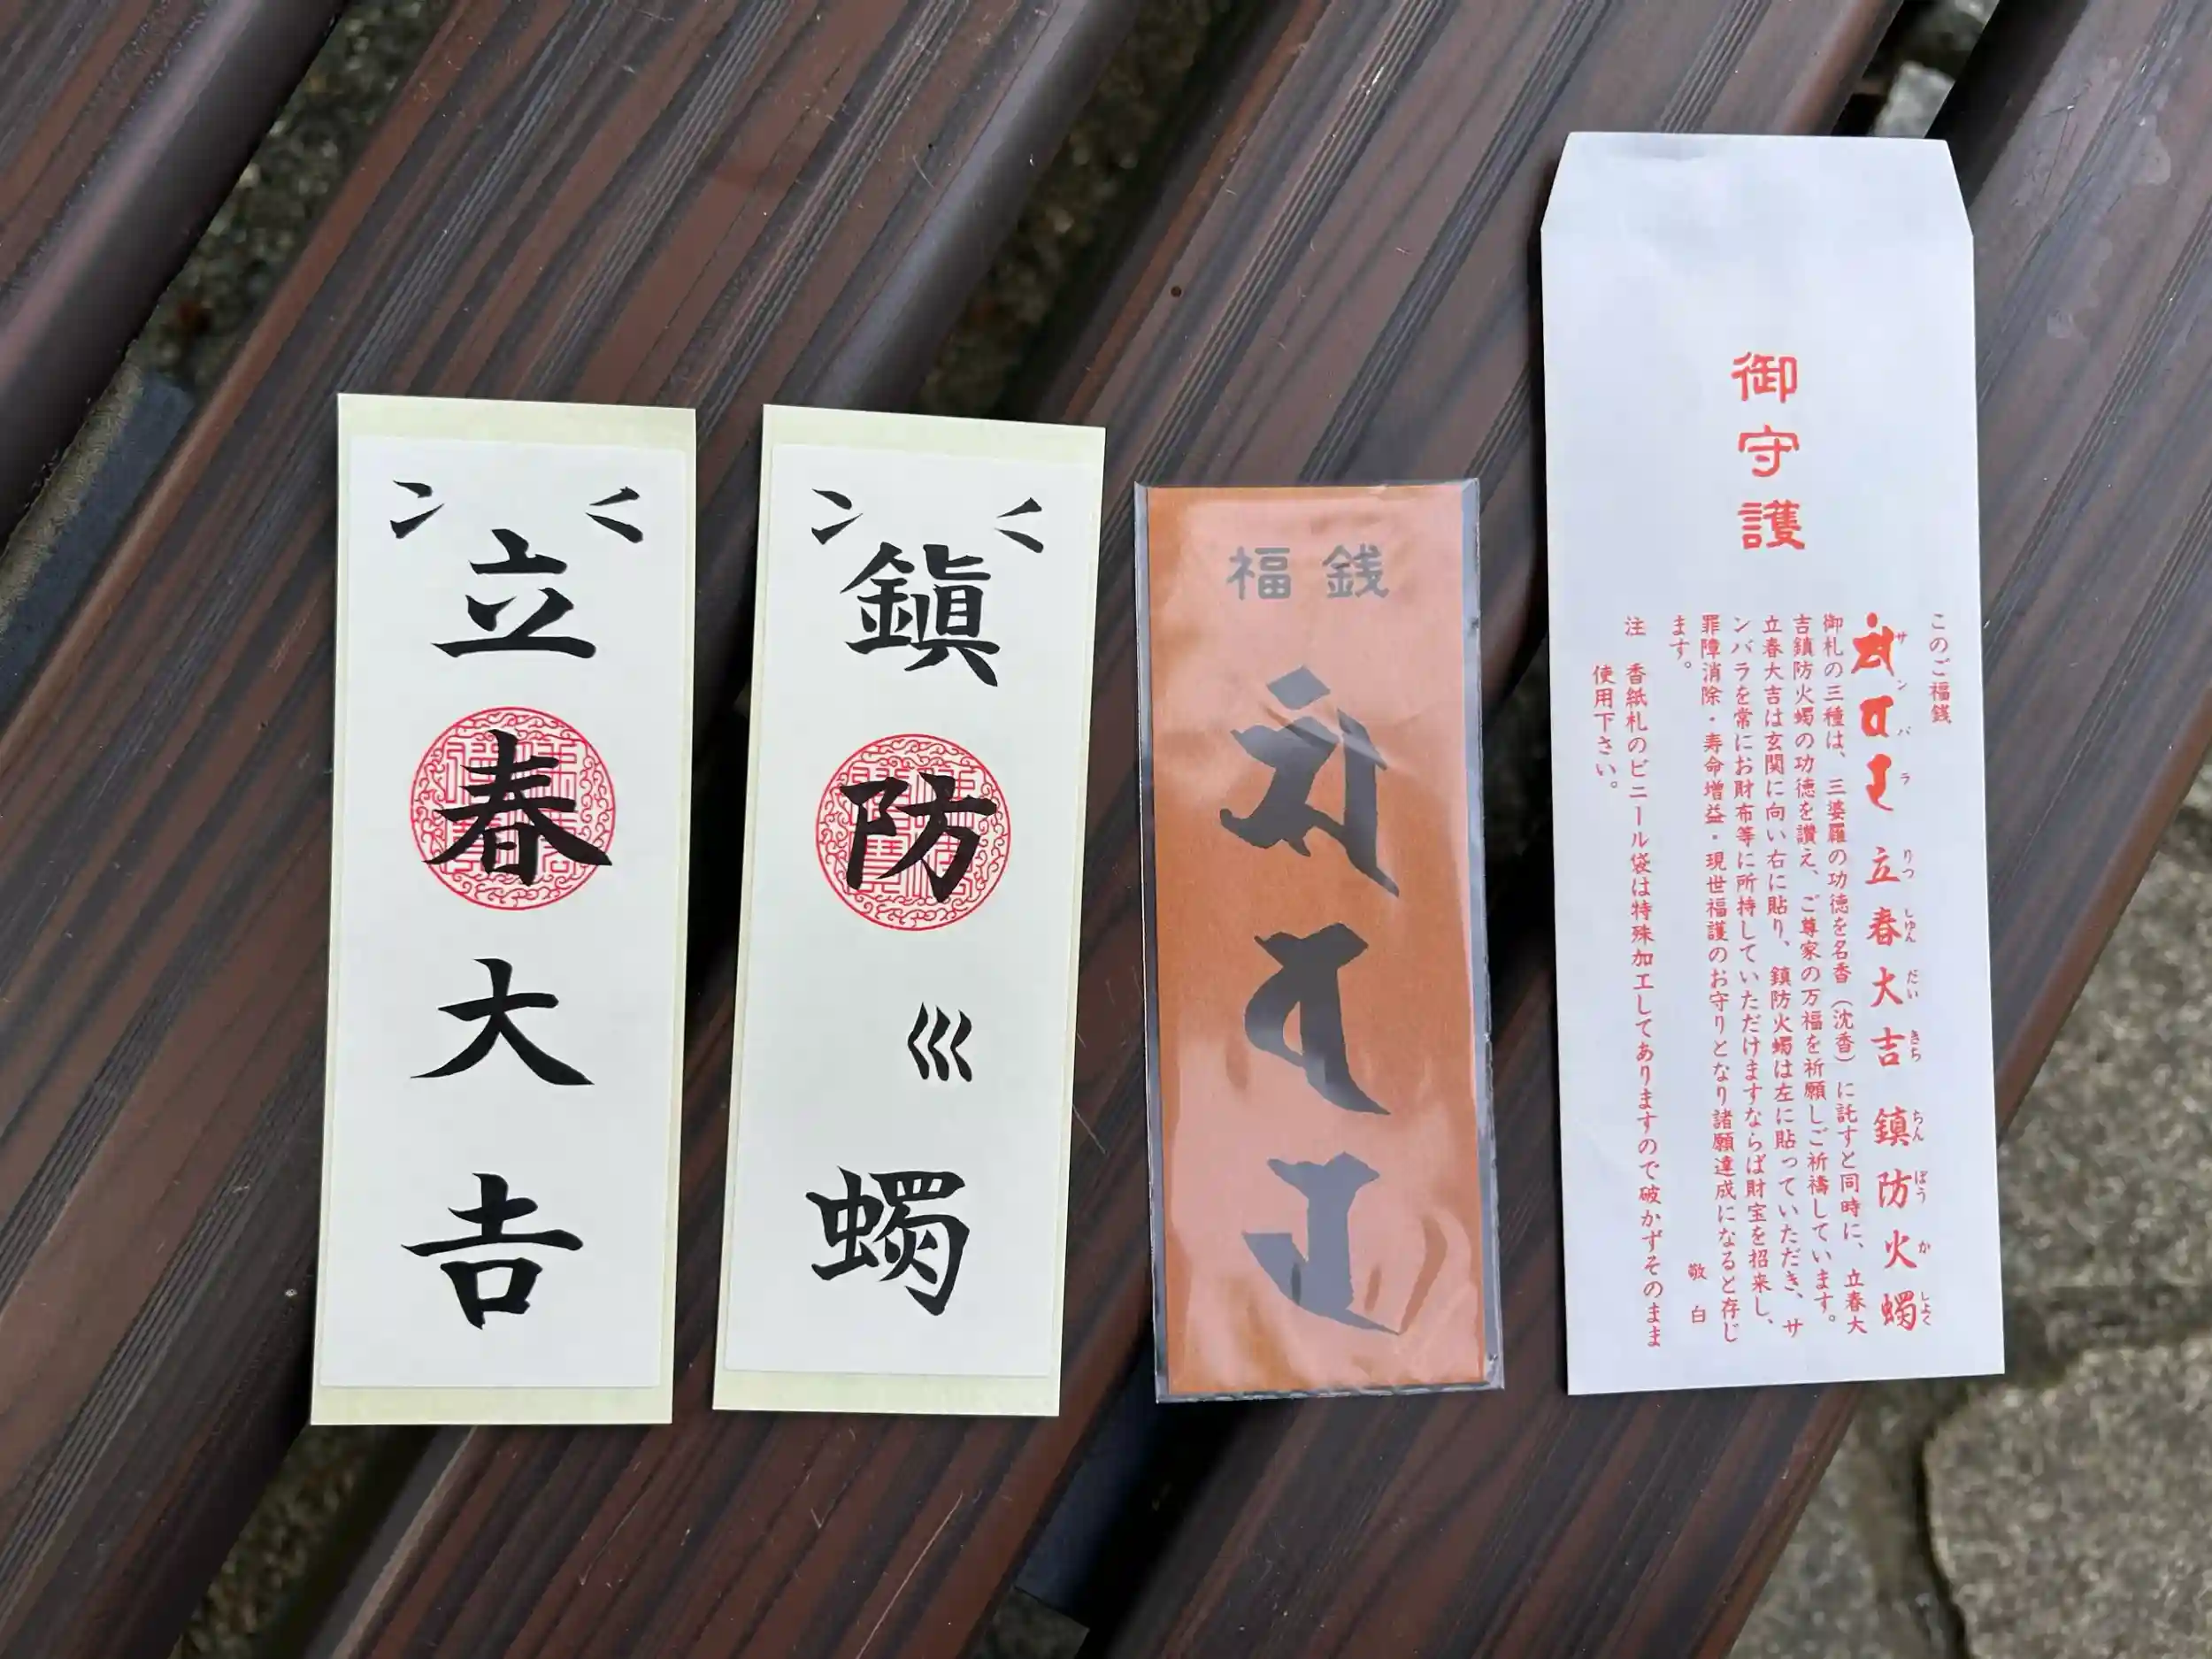 立春大吉
鎭防巛蠋
福銭
御守護
このご福銭
サンバラ
立春大吉 鎮防火蠋
りつしゅんだいきち ちんぼうかしよく
御札の三種は、三婆羅の功徳を名香（沈香）に託すと同時に、立春大
吉鎮防火蠋の功徳を讃え、ご尊家の万福を祈願しご祈禱しています。
立春大吉は玄関に向い右に貼り、鎮防火蠋は左に貼っていただき、サ
ンバラを常にお財布等に所持していただけますならば財宝を招来し、
罪障消除・寿命増益・現世福護のお守りとなり諸願達成になると存じ
ます。
敬白
注　香紙札のビニール袋は特殊加工してありますので破かずそのまま
使用下さい。